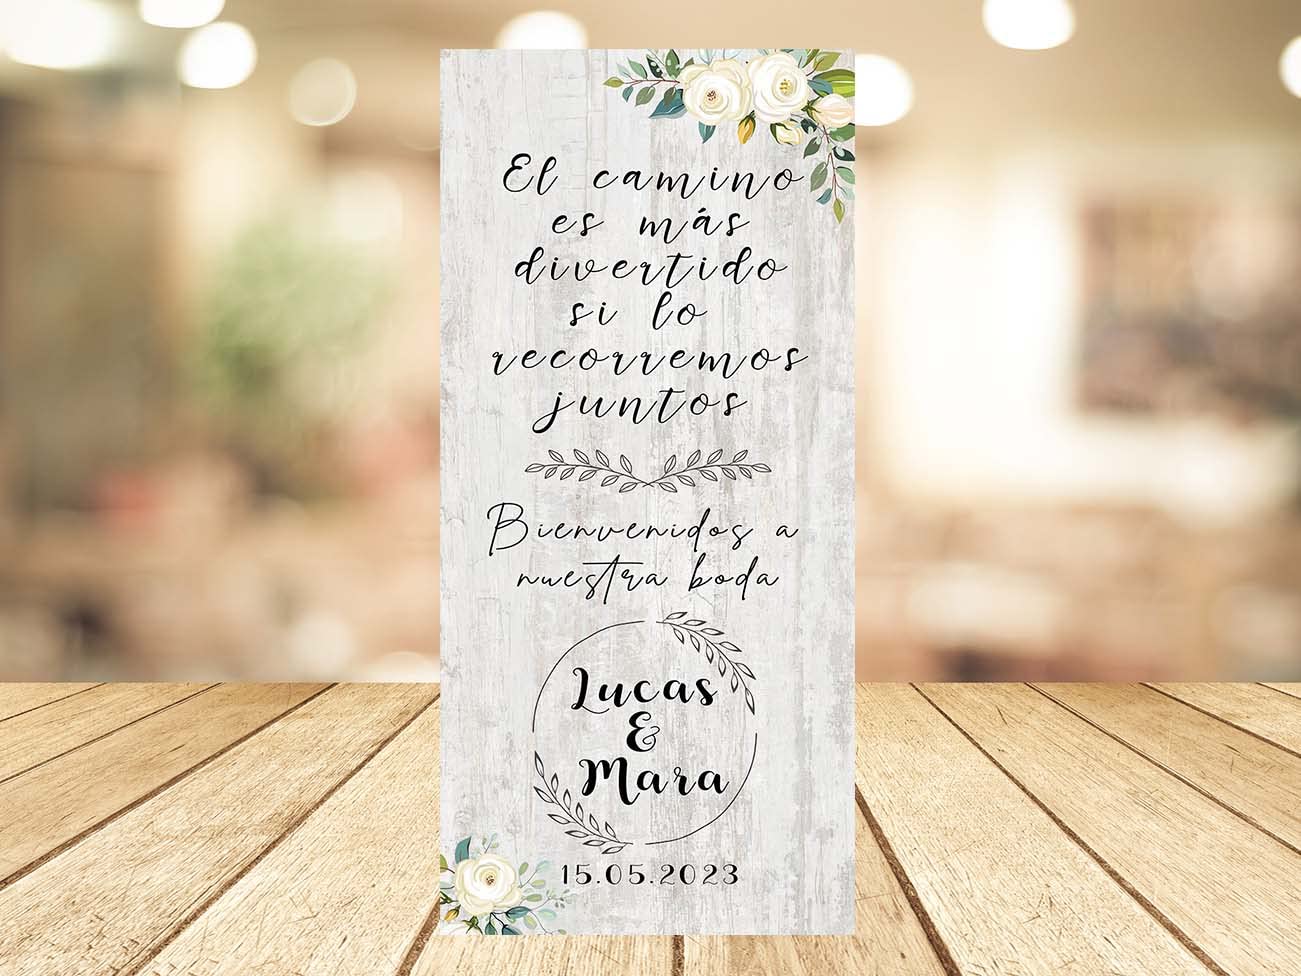 El camino
es más
divertido
si lo
recorremos
juntos
Bienvenidos a
nuestra boda
Lucas
&
Mara
15.05.2023